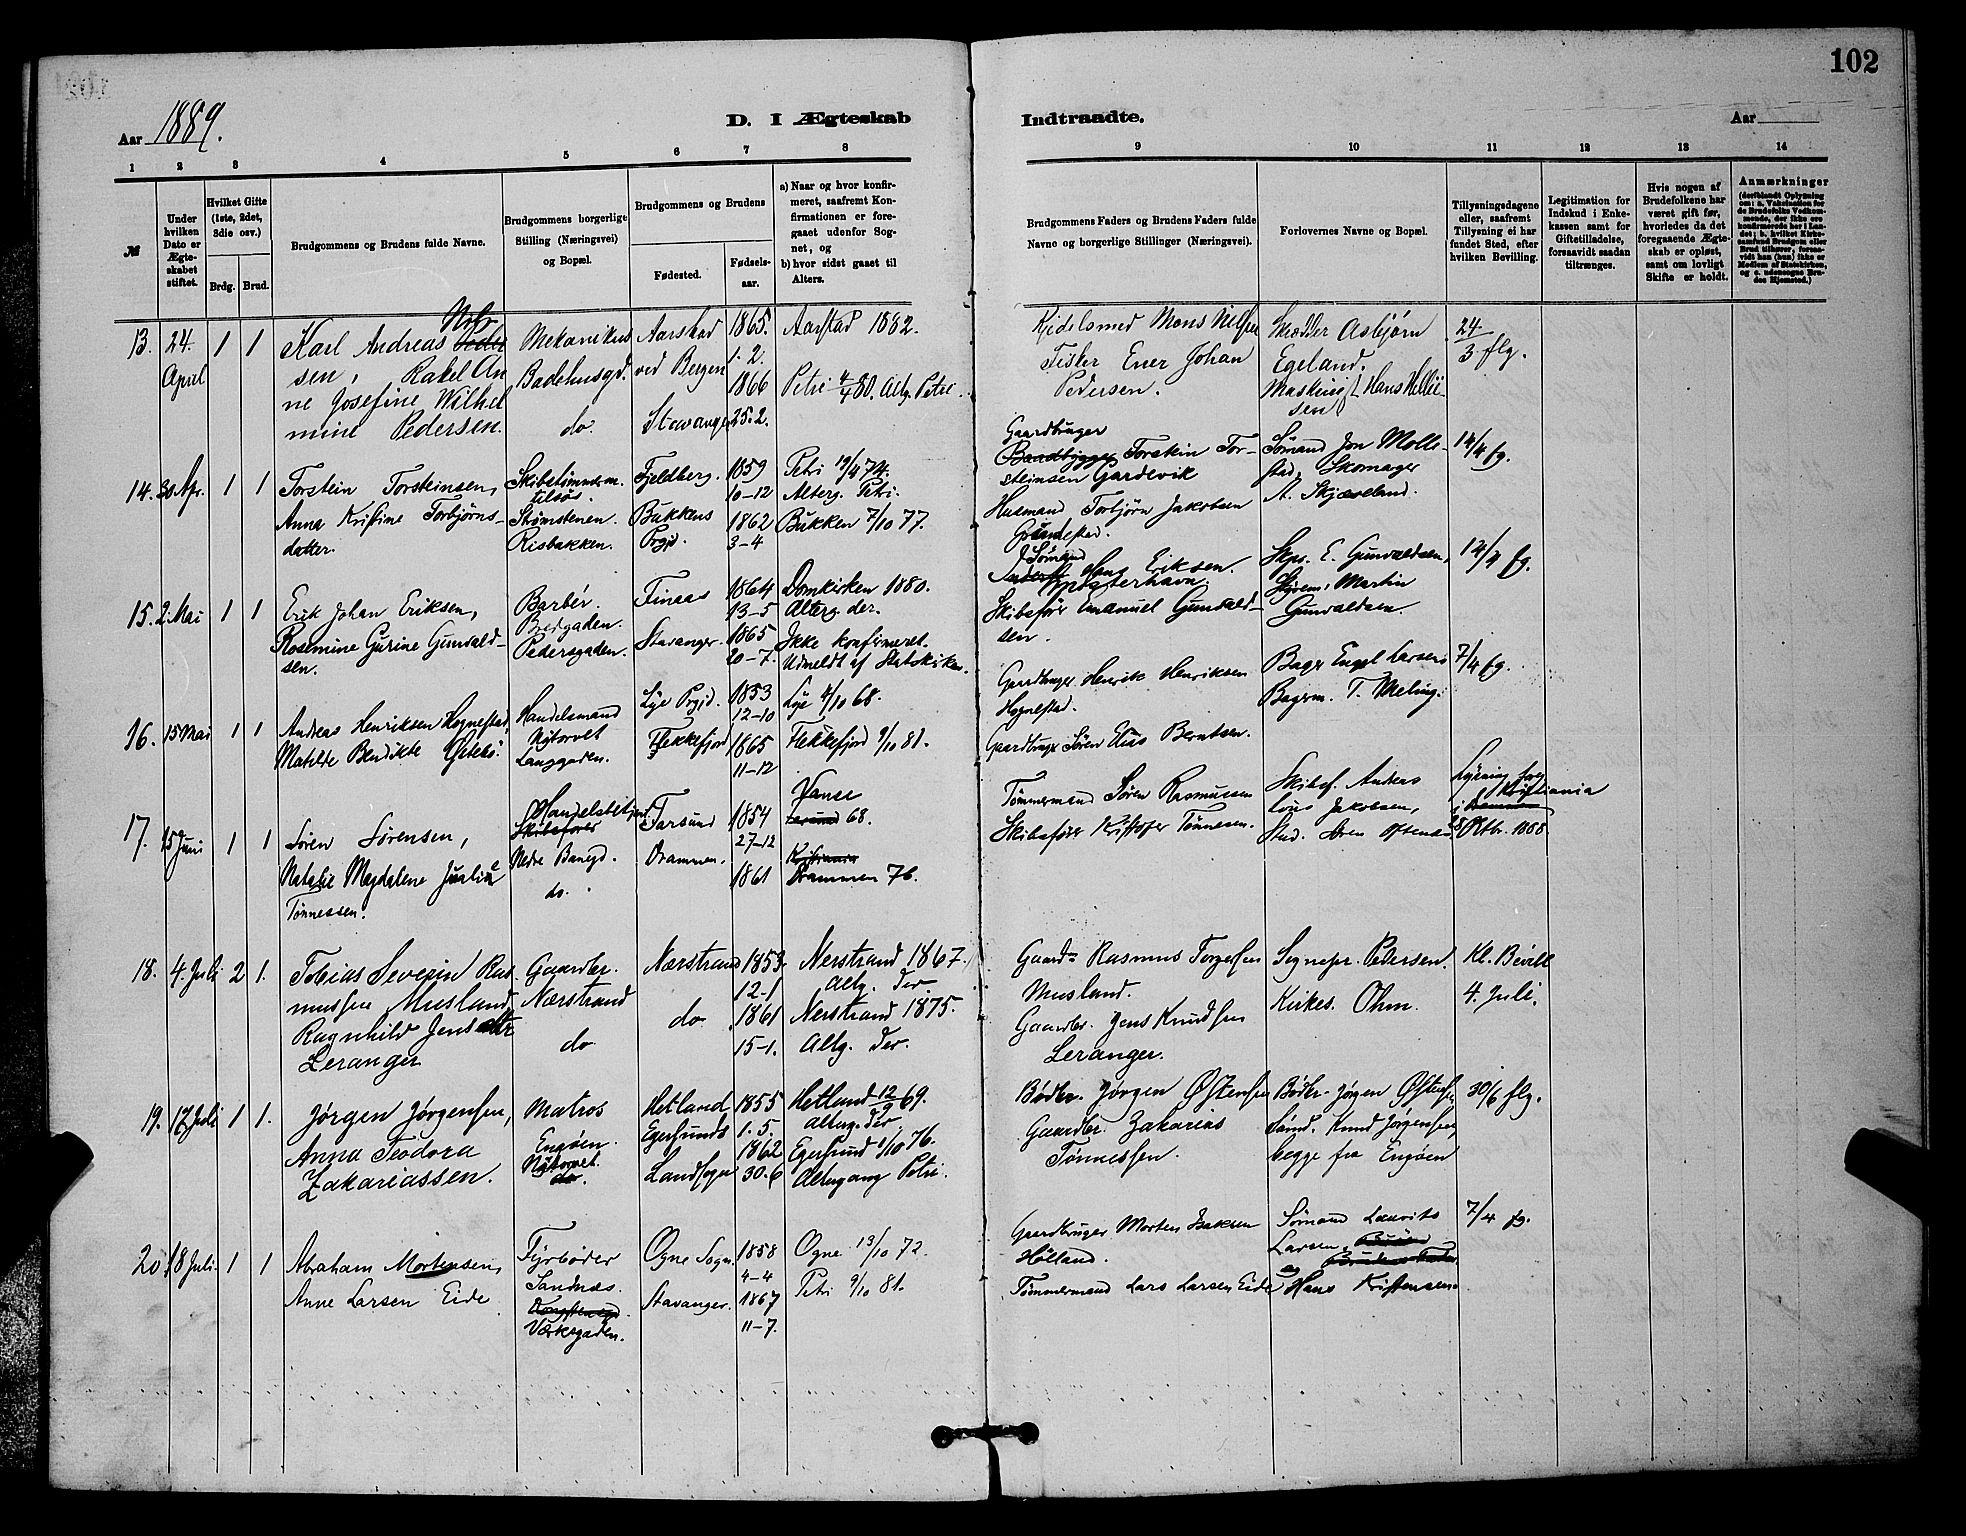 102
Aar 1889.
D. I Ægteskab
Indtraadte.
Aar
1 2 3 4 5 6 7 8
9 10 11 12 13 14
№
Under hvilken Dato er Ægteskabet stiftet.
Hvilket Gifte (1ste, 2det, 3die osv.)
Brdg. Brud.
Brudgommens og Brudens fulde Navne.
Brudgommens borgerlige Stilling (Næringsvei) og Bopæl.
Brudgommens og Brudens
Fødested.
Fødsels-aar.
a) Naar og hvor konfirmeret, saafremt Konfirmationen er foregaaet udenfor Sognet, og
b) hvor sidst gaaet til Alters.
Brudgommens Faders og Brudens Faders fulde Navne og borgerlige Stillinger (Næringsvei).
Forlovernes Navne og Bopæl.
Tillysningsdagene eller, saafremt Tillysning ei har fundet Sted, efter hvilken Bevilling.
Legitimation for Indskud i Enkekassen samt for Giftetilladelse, forsaavidt saadan tiltrænges.
Hvis nogen af Brudefolkene har været gift før, hvorledes da det foregaaende Ægteskab er opløst, samt om lovligt Skifte er holdt.
Anmærkninger
13. 24. April 1 1
Karl Andreas Nils
sen, Rakel An
ne Josefine Wilhel
mine Pedersen.
Mekanikus
Badehusgd.
do.
Aarstad
ved Bergen
Stavanger
1865.
1.2.
1866
25.2.
Aarstad 1862.
Petri 4/4 80. Altg. Petri
Kjedelsmed Mons Nilsen
Fisker Ener Johan
Pedersen.
Asbjørn
Egeland.
24/3 flg.
14. 30 Apr. 1 1
Torstein Torsteinsen,
Anna Kristine Torbjørns-
datter.
Strømstenen.
Risbakken.
Fjeldberg.
Bukkens
Prgjd.
1859
10-12
1862
3-4
Petri 19/4 74.
Alterg. Petri.
Bukken 7/10 77.
Gaardbruger
Torstein Tor-
steinsen Gardevik
Husmand Torbjørn Jakobsen
Sømand Jon Molle-
stad, Skomager
A. Skjæveland.
14/4 fg.
15. 2. Mai 1 1
Erik Johan Eriksen,
Rosemine Gurine Gunvald-
sen.
Barbér.
Bredgaden.
Pedersgaden.
Tinaas
Stavanger.
1864
13-5
1865
20-7.
Domkirken 1880.
Alterg. der.
Ikke konfirmeret.
Udmeldt af Statskirken.
Sømand
Hans Eriksen.
Skibsfører Emanuel Gunvald-
sen.
Skps. E. Gunvaldsen,
Martin
Gunvaldsen.
14/4 fg.
16. 15 Mai 1 1
Andreas Henriksen Hognestad,
Matilde Bendikte
Handelsmand
Nytorvet
Langgaden.
Lye Prgjd.
Flekkefjord
1853
12-10
1865
11-12
Lye 4/10 68.
Flekkefjord 9/10 81.
Gaardbruger Henrik Henriksen
Hognestad.
Gaardbruger Søren Elias Berntsen.
Bager Engel Larsen
Bagerm. T. Meling.
7/4 fg.
17. 15 Juni 1 1
Søren Sørensen,
Natalie Magdalene Juliue
Tønnessen.
Handelsbetjent
Skibsfører
Nedre Banegd.
do.
Farsund
Drammen.
1854
27-12
1861
Vanse
68.
Kristiania
Drammen 76.
Tømmermand Søren Rasmussen
Skibsfører Kristofer Tønnesen.
Skibsf. Anders
Jakobsen,
Stud. Søren
Lysning
Kristiania
Oktbr. 1888.
18. 4. Juli 2 1.
Tobias Severin Ras
mussen Musland
Ragnhild Jensdtr
Leranger
Gaardbr.
Nærstrand
do
Nærstrand
do
1853
12-1
1861
15-1.
Nerstrand 1867.
Altg. der.
Nerstrand 1875.
Altg. der.
Gaardbr Rasmus Torgersen
Musland.
Gaardbr. Jens Knudsen
Leranger.
Sognepr. Pedersen.
Kirkes. Ohm.
Kl. Bevill
4. Juli.
19. 17 Juli 1 1.
Jørgen Jørgensen,
Anna Teodora
Zakariassen.
Matros
Engøen.
Nytorvet.
do.
Hetland
Egersunds
Landsogn
1855
1.5.
1862
30.6
Hetland 12/9 69.
Altg. der
Egersund 1/10 76.
Altergang Petri.
Bødker. Jørgen Østensen
Gaardbr. Zakarias
Tønnessen.
Bødkr. Jørgen Østensen
Sømd. Knud Jørgensen,
begge fra Engøen
30/6 flg.
20. 18 Juli. 1 1
Abraham Mortensen,
Anne Larsen Eide
Fyrbøder
Sandnæs.
Værksgaden.
Ogne Sogn.
Stavanger.
1858
4-4
1867
11-7.
Ogne 13/10 72.
Petri 9/10 81.
Gaardbruger Morten Isaksen
Hølland.
Tømmermand Lars Larsen Eide
Sømand Lauvits
Larsen,
og Hans Kristensen.
7/4 fg.